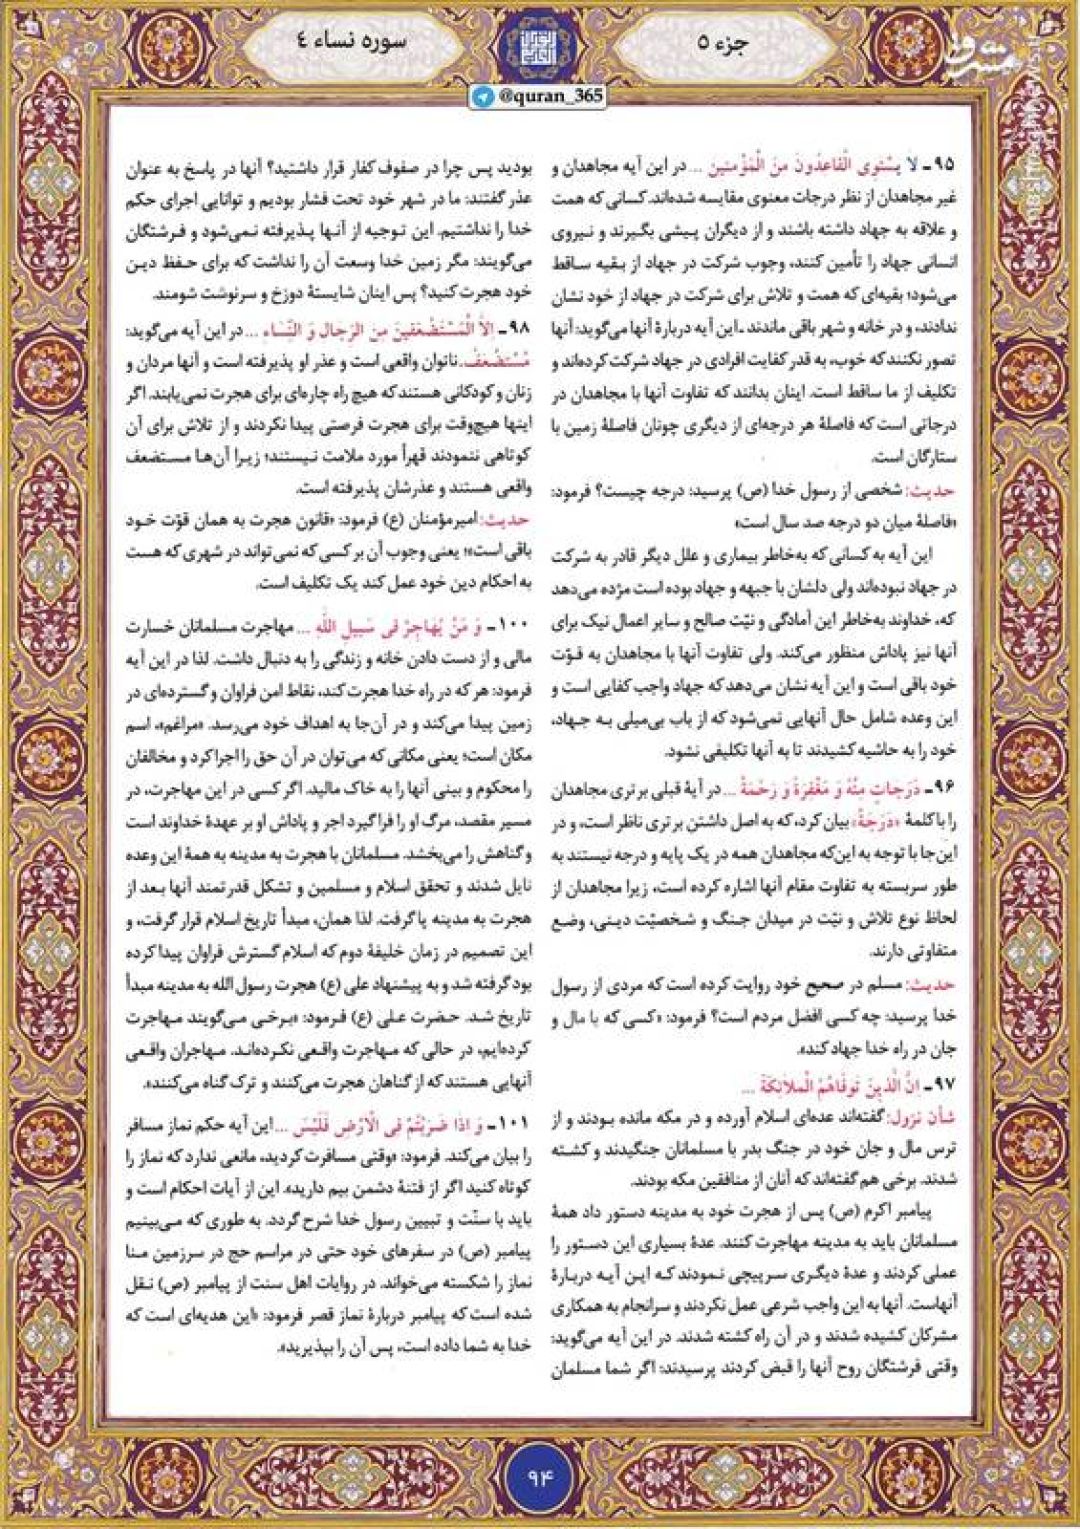 جزء ۵
سوره نساء ٤
@quran_365
مشرق
۹۵ـ لا یَسْتَوِی الْقاعِدُونَ مِنَ الْمُؤْمِنینَ ... در این آیه مجاهدان و
غیر مجاهدان از نظر درجات معنوی مقایسه شده‌اند. کسانی که همت
و علاقه به جهاد داشته باشند و از دیگران پیشی بگیرند و نیروی
انسانی جهاد را تأمین کنند، وجوب شرکت در جهاد از بقیه ساقط
می‌شود؛ بقیه‌ای که همت و تلاش برای شرکت در جهاد از خود نشان
ندادند، و در خانه و شهر باقی ماندند ـ این آیه دربارهٔ آنها می‌گوید: آنها
تصور نکنند که خوب، به قدر کفایت افرادی در جهاد شرکت کرده‌اند و
تکلیف از ما ساقط است. اینان بدانند که تفاوت آنها با مجاهدان در
درجاتی است که فاصلهٔ هر درجه‌ای از دیگری چونان فاصلهٔ زمین با
ستارگان است.
حدیث: شخصی از رسول خدا (ص) پرسید: درجه چیست؟ فرمود:
«فاصلهٔ میان دو درجه صد سال است»
این آیه به کسانی که به‌خاطر بیماری و علل دیگر قادر به شرکت
در جهاد نبوده‌اند ولی دلشان با جبهه و جهاد بوده است مژده می‌دهد
که، خداوند به‌خاطر این آمادگی و نیّت صالح و سایر اعمال نیک برای
آنها نیز پاداش منظور می‌کند. ولی تفاوت آنها با مجاهدان به قوّت
خود باقی است و این آیه نشان می‌دهد که جهاد واجب کفایی است و
این وعده شامل حال آنهایی نمی‌شود که از باب بی‌میلی به جهاد،
خود را به حاشیه کشیدند تا به آنها تکلیفی نشود.
۹۶ـ دَرَجاتٍ مِنْهُ وَ مَغْفِرَةً وَ رَحْمَةً ... در آیهٔ قبلی برتری مجاهدان
را با کلمهٔ «دَرَجَةً» بیان کرد، که به اصل داشتن برتری ناظر است، و در
این‌جا با توجه به این‌که مجاهدان همه در یک پایه و درجه نیستند به
طور سربسته به تفاوت مقام آنها اشاره کرده است، زیرا مجاهدان از
لحاظ نوع تلاش و نیّت در میدان جنگ و شخصیّت دینی، وضع
متفاوتی دارند.
حدیث: مسلم در صحیح خود روایت کرده است که مردی از رسول
خدا پرسید: چه کسی افضل مردم است؟ فرمود: «کسی که با مال و
جان در راه خدا جهاد کند».
۹۷ـ اِنَّ الَّذینَ تَوَفّاهُمُ الْمَلائِکَةُ ...
شأن نزول: گفته‌اند عده‌ای اسلام آورده و در مکه مانده بودند و از
ترس مال و جان خود در جنگ بدر با مسلمانان جنگیدند و کشته
شدند. برخی هم گفته‌اند که آنان از منافقین مکه بودند.
پیامبر اکرم (ص) پس از هجرت خود به مدینه دستور داد همهٔ
مسلمانان باید به مدینه مهاجرت کنند. عدهٔ بسیاری این دستور را
عملی کردند و عدهٔ دیگری سرپیچی نمودند که این آیه دربارهٔ
آنهاست. آنها به این واجب شرعی عمل نکردند و سرانجام به همکاری
مشرکان کشیده شدند و در آن راه کشته شدند. در این آیه می‌گوید:
وقتی فرشتگان روح آنها را قبض کردند پرسیدند: اگر شما مسلمان
بودید پس چرا در صفوف کفار قرار داشتید؟ آنها در پاسخ به عنوان
عذر گفتند: ما در شهر خود تحت فشار بودیم و توانایی اجرای حکم
خدا را نداشتیم. این توجیه از آنها پذیرفته نمی‌شود و فرشتگان
می‌گویند: مگر زمین خدا وسعت آن را نداشت که برای حفظ دین
خود هجرت کنید؟ پس اینان شایستهٔ دوزخ و سرنوشت شومند.
۹۸ـ اِلاَّ الْمُسْتَضْعَفینَ مِنَ الرِّجالِ وَ النِّساءِ ... در این آیه می‌گوید:
مُسْتَضْعَفْ. ناتوان واقعی است و عذر او پذیرفته است و آنها مردان و
زنان و کودکانی هستند که هیچ راه چاره‌ای برای هجرت نمی‌یابند. اگر
اینها هیچ‌وقت برای هجرت فرصتی پیدا نکردند و از تلاش برای آن
کوتاهی ننمودند قهراً مورد ملامت نیستند؛ زیرا آن‌ها مستضعف
واقعی هستند و عذرشان پذیرفته است.
حدیث: امیرمؤمنان (ع) فرمود: «قانون هجرت به همان قوّت خود
باقی است»؛ یعنی وجوب آن بر کسی که نمی‌تواند در شهری که هست
به احکام دین خود عمل کند یک تکلیف است.
۱۰۰ـ وَ مَنْ یُهاجِرْ فی سَبیلِ اللّٰهِ ... مهاجرت مسلمانان خسارت
مالی و از دست دادن خانه و زندگی را به دنبال داشت. لذا در این آیه
فرمود: هر که در راه خدا هجرت کند، نقاط امن فراوان و گسترده‌ای در
زمین پیدا می‌کند و در آن‌جا به اهداف خود می‌رسد. «مراغم»، اسم
مکان است؛ یعنی مکانی که می‌توان در آن حق را اجرا کرد و مخالفان
را محکوم و بینی آنها را به خاک مالید. اگر کسی در این مهاجرت، در
مسیر مقصد، مرگ او را فراگیرد اجر و پاداش او بر عهدهٔ خداوند است
و گناهش را می‌بخشد. مسلمانان با هجرت به مدینه به همهٔ این وعده
نایل شدند و تحقق اسلام و مسلمین و تشکل قدرتمند آنها بعد از
هجرت به مدینه پا گرفت. لذا همان، مبدأ تاریخ اسلام قرار گرفت، و
این تصمیم در زمان خلیفهٔ دوم که اسلام گسترش فراوان پیدا کرده
بود گرفته شد و به پیشنهاد علی (ع) هجرت رسول الله به مدینه مبدأ
تاریخ شد. حضرت علی (ع) فرمود: «برخی می‌گویند مهاجرت
کرده‌ایم، در حالی که مهاجرت واقعی نکرده‌اند. مهاجران واقعی
آنهایی هستند که از گناهان هجرت می‌کنند و ترک گناه می‌کنند».
۱۰۱ـ وَ اِذا ضَرَبْتُمْ فِی الْاَرْضِ فَلَیْسَ ... این آیه حکم نماز مسافر
را بیان می‌کند. فرمود: «وقتی مسافرت کردید، مانعی ندارد که نماز را
کوتاه کنید اگر از فتنهٔ دشمن بیم دارید». این از آیات احکام است و
باید با سنّت و تبیین رسول خدا شرح گردد. به طوری که می‌بینیم
پیامبر (ص) در سفرهای خود حتی در مراسم حج در سرزمین منا
نماز را شکسته می‌خواند. در روایات اهل سنت از پیامبر (ص) نقل
شده است که پیامبر دربارهٔ نماز قصر فرمود: «این هدیه‌ای است که
خدا به شما داده است، پس آن را بپذیرید».
۹۴